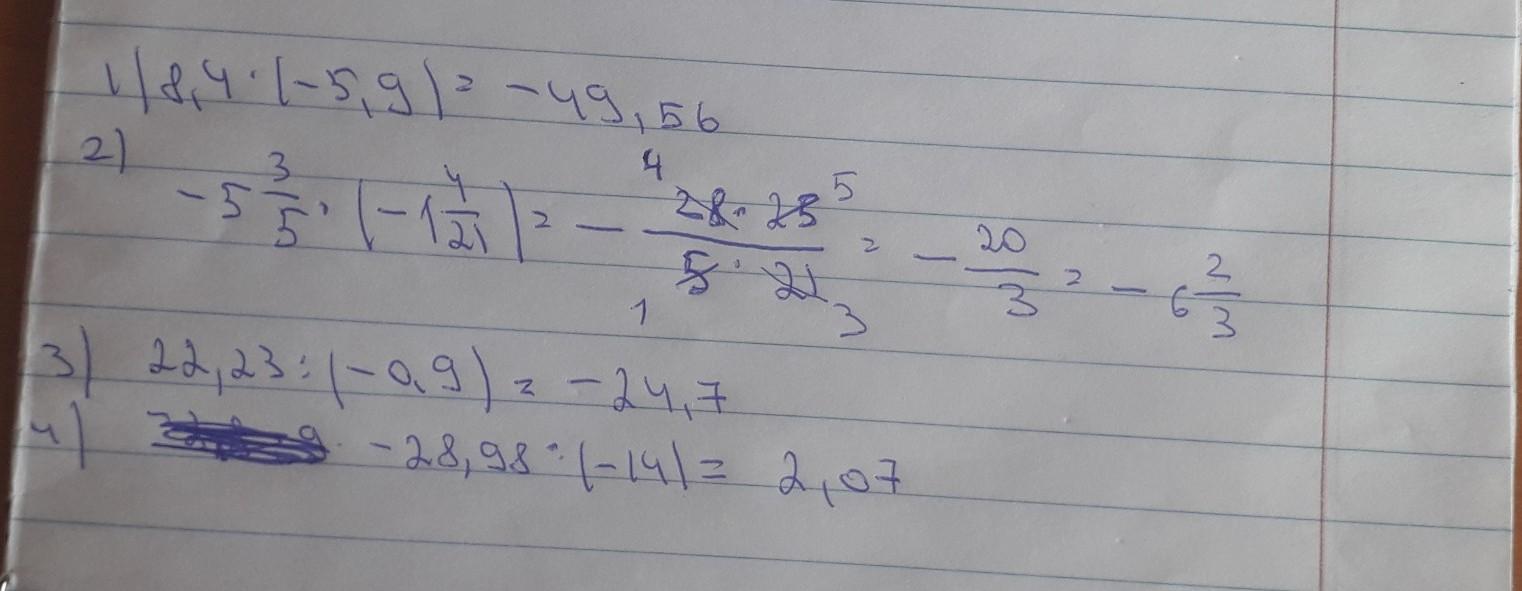 1) 8,4 · (-5,9) = -49,56
2) -5 3/5 · (-1 4/21) = - 28 · 25 / 5 · 21 = - 20/3 = - 6 2/3
4 5
1 3
3) 22,23 : (-0,9) = -24,7
4) -28,98 : (-14) = 2,07